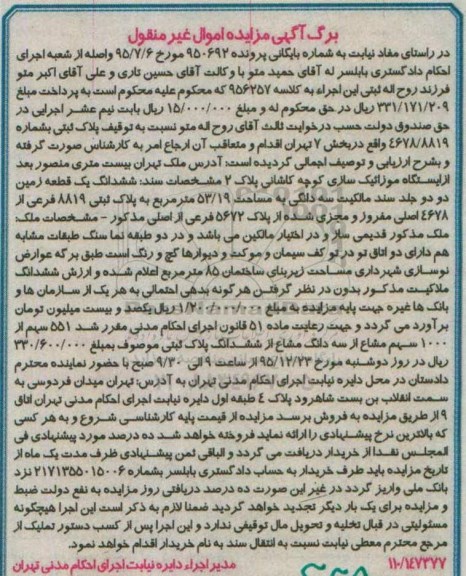 برگ آگهی مزایده اموال غیر منقول
در راستای مفاد نیابت به شماره بایگانی پرونده ۹۵۰۶۹۲ مورخ ۹۵/۷/۶ واصله از شعبه اجرای
احکام دادگستری بابلسر له آقای حمید متو با وکالت آقای حسین تاری و علی آقای اکبر متو
فرزند روح اله ثبتی این اجراء به کلاسه ۹۵۶۲۵۷ که محکوم علیه محکوم است به پرداخت مبلغ
۳۳۱/۱۷۱/۲۰۹ ریال در حق محکوم له و مبلغ ۱۵/۰۰۰/۰۰۰ ریال بابت نیم عشر اجرایی در
حق صندوق دولت حسب درخوایت ثالث آقای روح اله متو نسبت به توقیف پلاک ثبتی بشماره
۴۶۷۸/۸۸۱۹ واقع دربخش ۷ تهران اقدام و متعاقب آن ارجاع امر به کارشناس صورت گرفته
و بشرح ارزیابی و توصیف اجمالی گردیده است: آدرس ملک تهران بیست متری منصور بعد
ازایستگاه موزائیک سازی کوچه کاشانی پلاک ۲ مشخصات سند: ششدانگ یک قطعه زمین
دو دو جلد سند مالکیت سه دانگی به مساحت ۵۳/۱۹ مترمربع به پلاک ثبتی ۸۸۱۹ فرعی از
۴۶۷۸ اصلی مفروز و مجزی شده از پلاک ۵۶۷۲ فرعی از اصلی مذکور - مشخصات ملک:
ملک مذکور قدیمی ساز و در اختیار مالکین می باشد و در دو طبقه نما سنگ طبقات مشابه
هم دارای دو اتاق تو در تو کف سیمان و موکت و دیوارها گچ و رنگ است طبق برگه عوارض
نوسازی شهرداری مساحت زیربنای ساختمان ۸۵ مترمربع اعلام شده و ارزش ششدانگ
ملاکیت مذکور بدون در نظر گرفتن هرگونه بدهی احتمالی به هر یک از سازمان ها و
بانک ها غیره جهت پایه مزایده به مبلغ ۱/۲۰۰/۰۰۰/۰۰۰ ریال یکصد و بیست میلیون تومان
برآورد می گردد و جهت رعایت ماده ۵۱ قانون اجرای احکام مدنی مقرر شد ۵۵۱ سهم از
۱۰۰۰ سهم مشاع از سه دانگ مشاع از ششدانگ پلاک ثبتی موصوف بمبلغ ۳۳۰/۶۰۰/۰۰۰
ریال در روز دوشنبه مورخ ۹۵/۱۲/۲۳ از ساعت ۹ الی ۹/۳۰ صبح با حضور نماینده محترم
دادستان در محل دایره نیابت اجرای احکام مدنی تهران به آدرس: تهران میدان فردوسی به
سمت انقلاب بن بست شاهرود پلاک ۴ طبقه اول دایره نیابت اجرای احکام مدنی تهران اتاق
۹ از طریق مزایده به فروش برسد مزایده از قیمت پایه کارشناسی شروع و به هر کسی
که بالاترین نرخ پیشنهادی را ارائه نماید فروخته خواهد شد ده درصد مورد پیشنهادی فی
المجلس نقدا از خریدار دریافت می گردد و الباقی ثمن پیشنهادی ظرف مدت یک ماه از
تاریخ مزایده باید طرف خریدار به حساب دادگستری بابلسر بشماره ۲۱۷۱۳۵۵۰۱۵۰۰۶ نزد
بانک ملی واریز گردد در غیر این صورت ده درصد دریافتی روز مزایده به نفع دولت ضبط
و مزایده برای یک بار دیگر تجدید خواهد گردید ضمنا لازم به ذکر است این اجرا هیچگونه
مسئولیتی در قبال تخلیه و تحویل مال توقیفی ندارد و این اجرا پس از کسب دستور تملیک از
مرجع محترم معطی نیابت نسبت به انتقال سند به نام خریدار اقدام خواهد نمود.
۱۱۰/۱۴۷۳۷۷ مدیر اجراء دایره نیابت اجرای احکام مدنی تهران